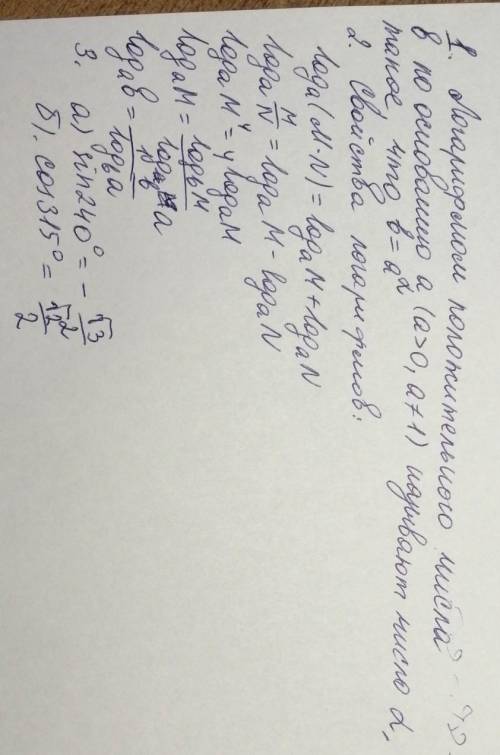 1. Логарифмом положительного числа
в по основанию a (a>0, a≠1) называют число α,
такое что в=a^α
2. Свойства логарифмов:
loga(M·N)=logaM+logaN
loga M/N = logaM-logaN
logaM^γ=γlogaM
logaM= logвM / logвa
logaв= 1 / logвa
3. a) sin240°= - √3/2
б). cos315°= √2/2